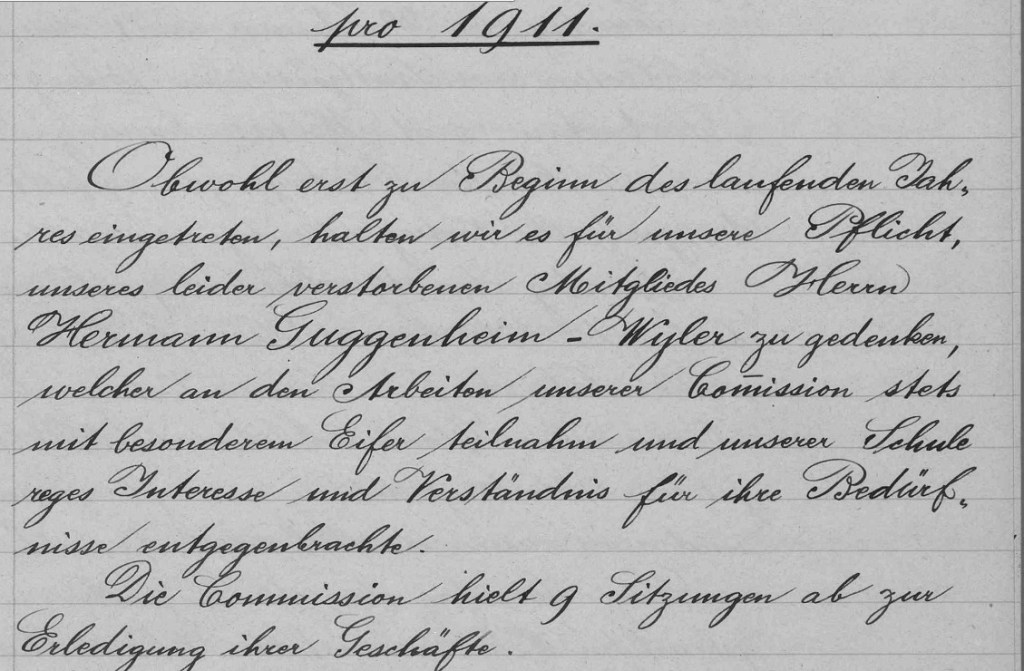 pro 1911.
Obwohl erst zu Beginn des laufenden Jah„
res eingetreten, halten wir es für unsere Pflicht,
unseres leider verstorbenen Mitgliedes Herrn
Hermann Guggenheim - Wyler zu gedenken,
welcher an den Arbeiten unserer Com̅ission stets
mit besonderem Eifer teilnahm und unserer Schule
reges Interesse und Verständnis für ihre Bedürf„
nisse entgegenbrachte.
Die Commission hielt 9 Sitzungen ab zur
Erledigung ihrer Geschäfte.